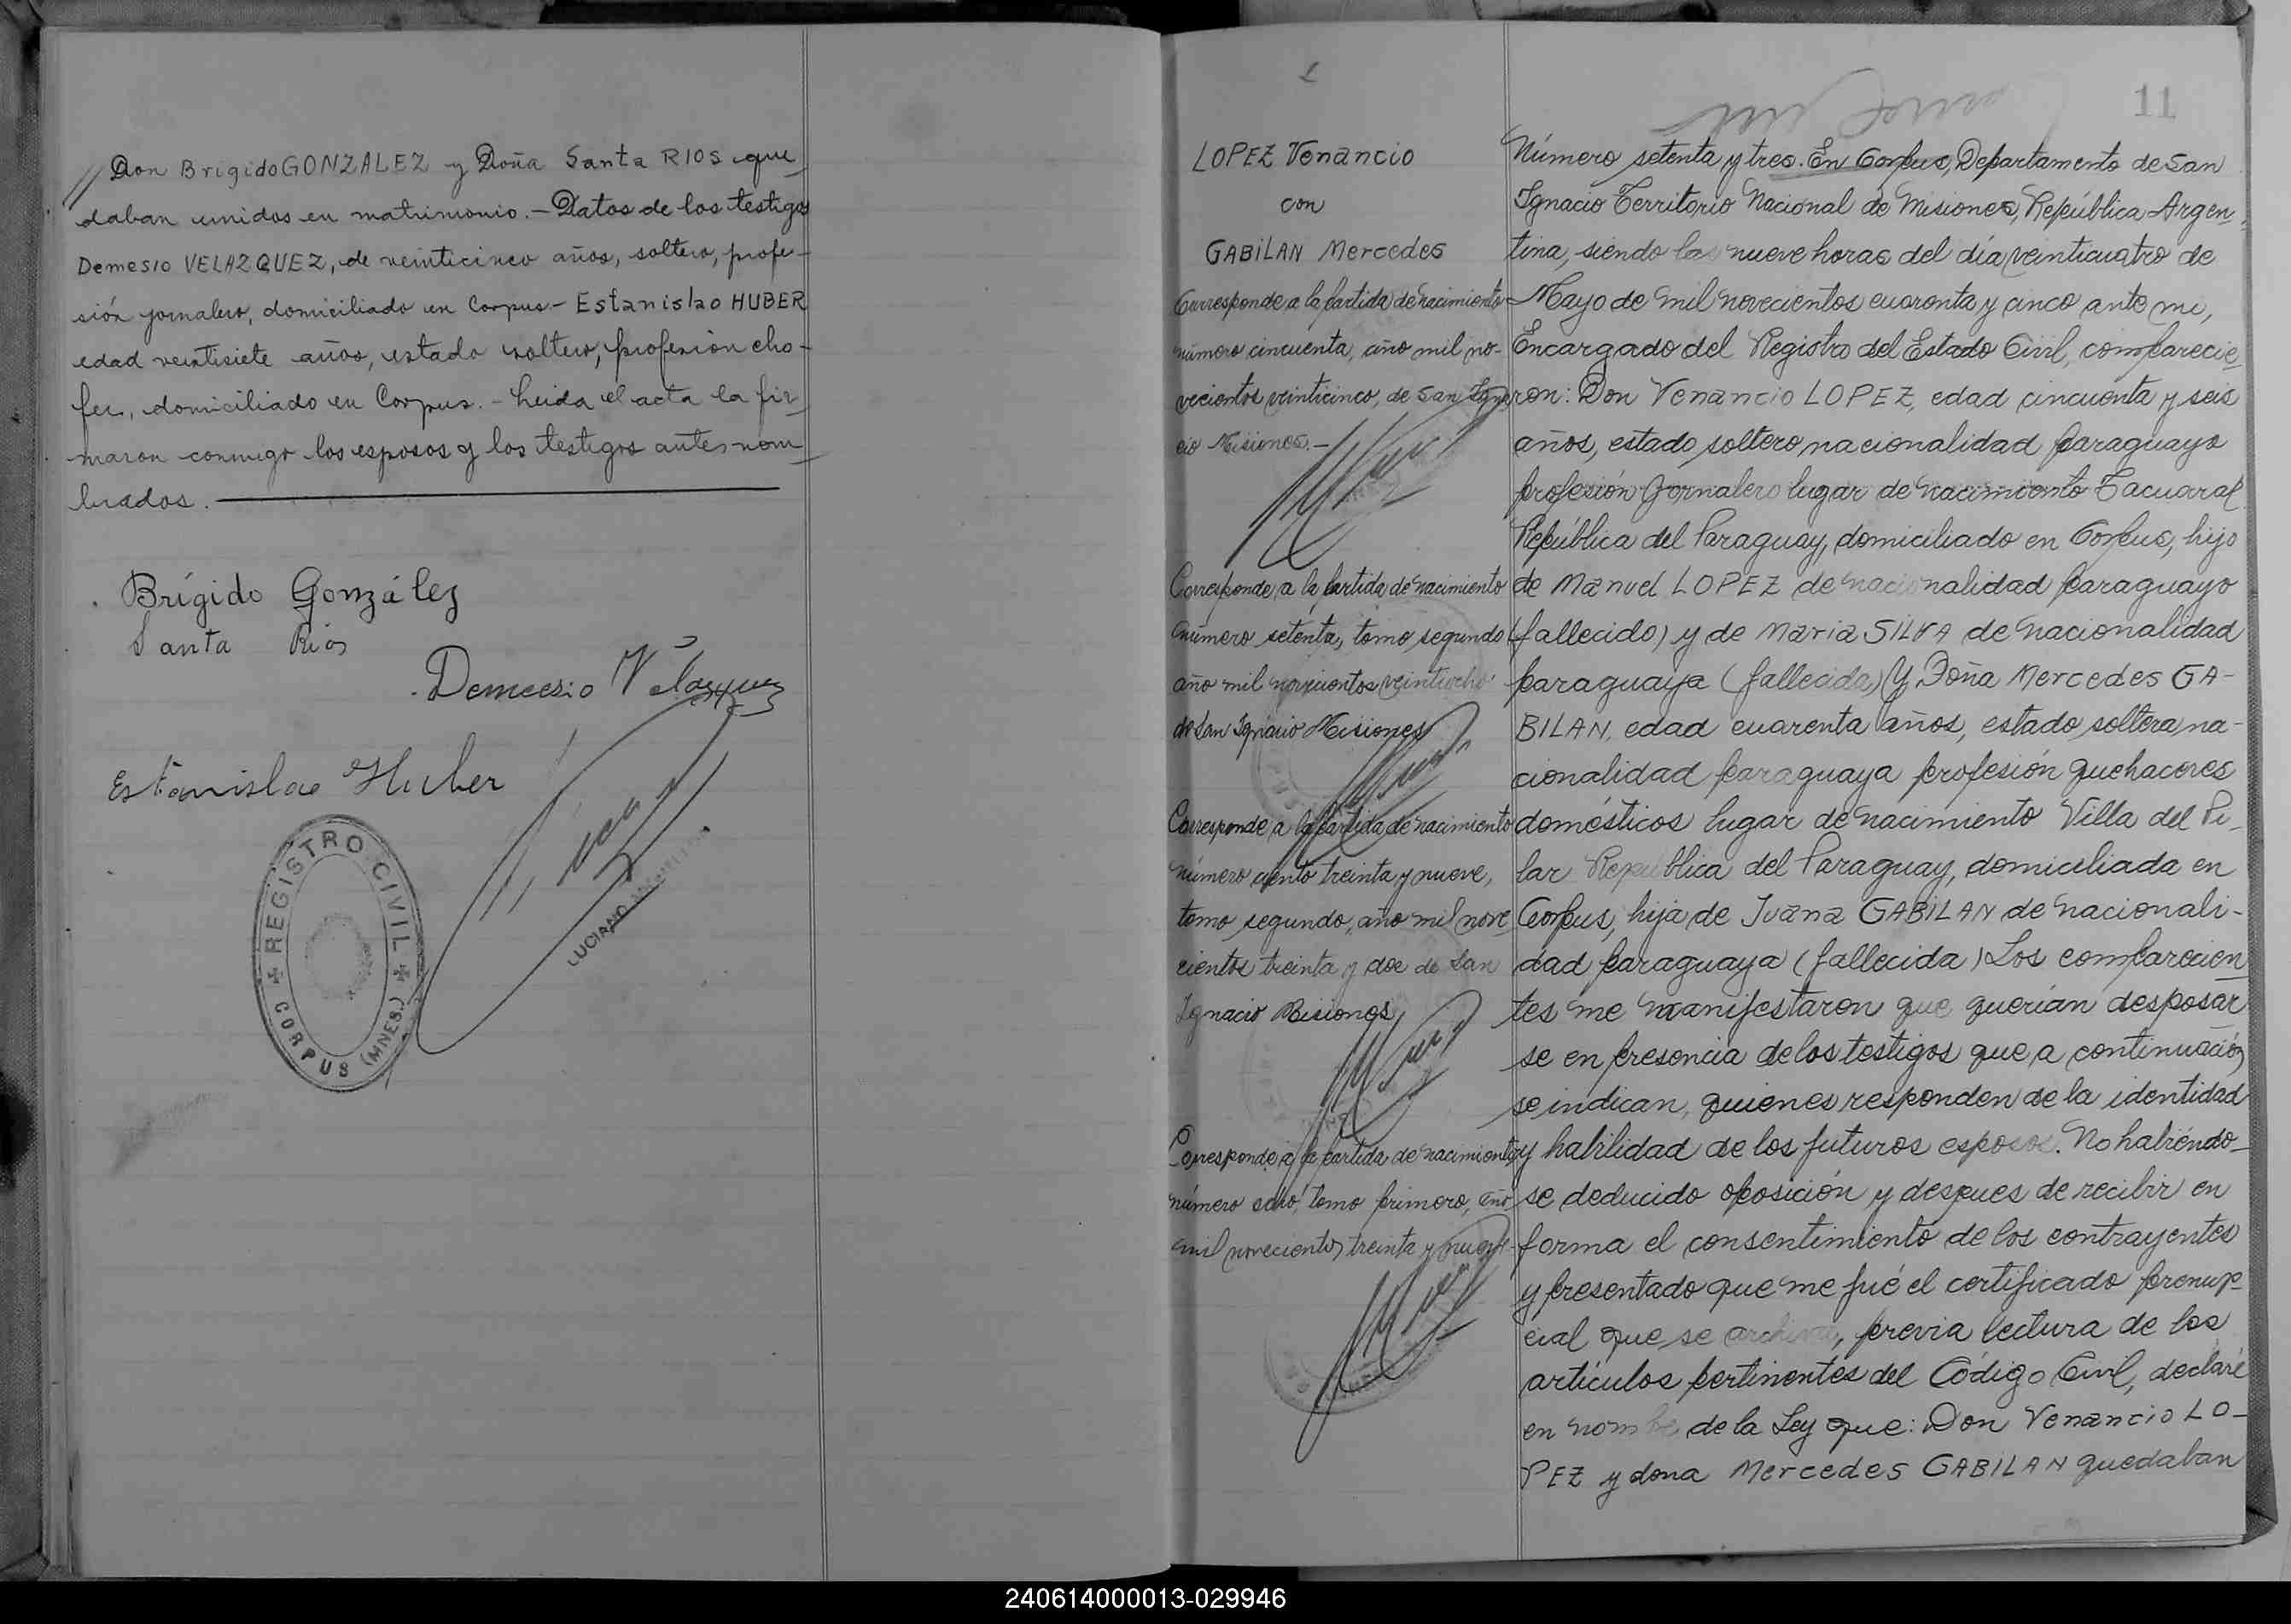 // Don Brigido GONZALEZ y Doña Santa RIOS que
daban unidos en matrimonio.- Datos de los testigos
Demesio VELAZQUEZ, de veinticinco años, soltero, profe-
sión jornalero, domiciliado en Corpus.- Estanislao HUBER
edad veintisiete años, estado soltero, profesión cho-
fer, domiciliado en Corpus.- Leida el acta la fir-
maron conmigo los esposos y los testigos antes nom
brados.
Brígido González
Santa Rios
Demecio Velazquez
Estanislao Huber
REGISTRO CIVIL
CORPUS (MNES.)
LUCIANO
11
LOPEZ Venancio
con
GABILAN Mercedes
Corresponde a la partida de nacimiento
número cincuenta, año mil no-
vecientos veinticinco, de San Igna
cio Misiones.-
Corresponde a la partida de nacimiento
número setenta, tomo segundo
año mil novecientos veintiocho
de San Ignacio Misiones
Corresponde a la partida de nacimiento
número ciento treinta y nueve,
tomo segundo, año mil nove
cientos treinta y dos de San
Ignacio Misiones
Corresponde a la partida de nacimiento
número ocho, tomo primero, año
mil novecientos treinta y nueve
Número setenta y tres. En Corpus, Departamento de San
Ignacio Territorio Nacional de Misiones, República Argen-
tina, siendo las nueve horas del día veinticuatro de
Mayo de mil novecientos cuarenta y cinco ante mi,
Encargado del Registro del Estado Civil, comparecie
ron: Don Venancio LOPEZ, edad cincuenta y seis
años, estado soltero nacionalidad paraguayo
profesión Jornalero lugar de nacimiento Tacuaral
República del Paraguay, domiciliado en Corpus, hijo
de Manuel LOPEZ de nacionalidad paraguayo
(fallecido) y de Maria SILVA de nacionalidad
paraguaya (fallecida) Y Doña Mercedes GA-
BILAN, edad cuarenta años, estado soltera na-
cionalidad paraguaya profesión quehaceres
domésticos lugar de nacimiento Villa del Pi-
lar República del Paraguay, domiciliada en
Corpus, hija de Juana GABILAN de nacionali-
dad paraguaya (fallecida) Los comparecien
tes me manifestaron que querían desposar
se en presencia de los testigos que a continuación
se indican, quienes responden de la identidad
y habilidad de los futuros esposos. No habiéndo-
se deducido oposición y despues de recibir en
forma el consentimiento de los contrayentes
y presentado que me fué el certificado prenup-
cial que se archiva, previa lectura de los
artículos pertinentes del Código Civil, declaré
en nombre de la Ley que: Don Venancio LO-
PEZ y dona Mercedes GABILAN quedaban
240614000013-029946